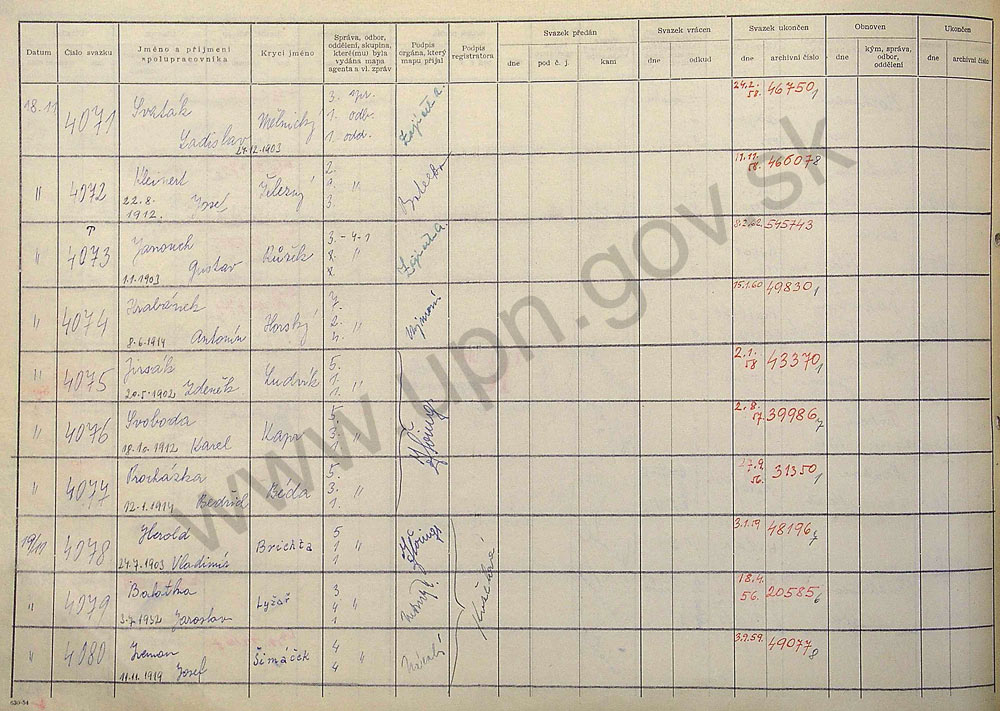 Datum Číslo svazku Jméno a příjmení spolupracovníka Krycí jméno Správa, odbor, oddělení, skupina, které(mu) byla vydána mapa agenta a vl. zpráv Podpis orgána, který mapu přijal Podpis registratora Svazek předán Svazek vrácen Svazek ukončen Obnoven Ukončen
dne pod č. j. kam dne odkud dne archivní číslo dne kým, správa, odbor, oddělení dne archivní číslo
18.11 4071 Svaták Ladislav 27.12.1903 Mělnický 3. spr. 1. odb. 1. odd. 24.2. 58. 46750/1
" 4072 Kleinert Josef 22.8. 1912. Železný 2. " 3. 11.11. 58. 46607/8
" 4073 Janouch Gustav 1.1.1903 Růžek 3. - 4 - 1 8. " 8. 8.2.62. 545743
" 4074 Hrabánek Antonín 8.6.1914 Horský 2. " 4. 15.1.60 49830/1
" 4075 Jirsák Zdeněk 20.5.1902 Ludvík 5. 1. " 1. 2.1. 58 43370/1
" 4076 Svoboda Karel 18.10.1912 Kapr 5. 3. " 1. 2.8. 57. 39986/7
" 4077 Procházka Bedřich 12.1.1914 Béda 5. 3. " 1. 27.9. 56. 31350/1
19/11 4078 Herold Vladimír 24.7.1903 Brichta 5 1 " 1 3.1.59 48196/7
" 4079 Balatka Jaroslav 3.7.1932 Lyžař 3 4 " 1 18.4. 56. 20585/6
" 4080 Zeman Josef 11.11.1919 Šimáček 4 " 4 3.9.59. 49077/8
www.upn.gov.sk